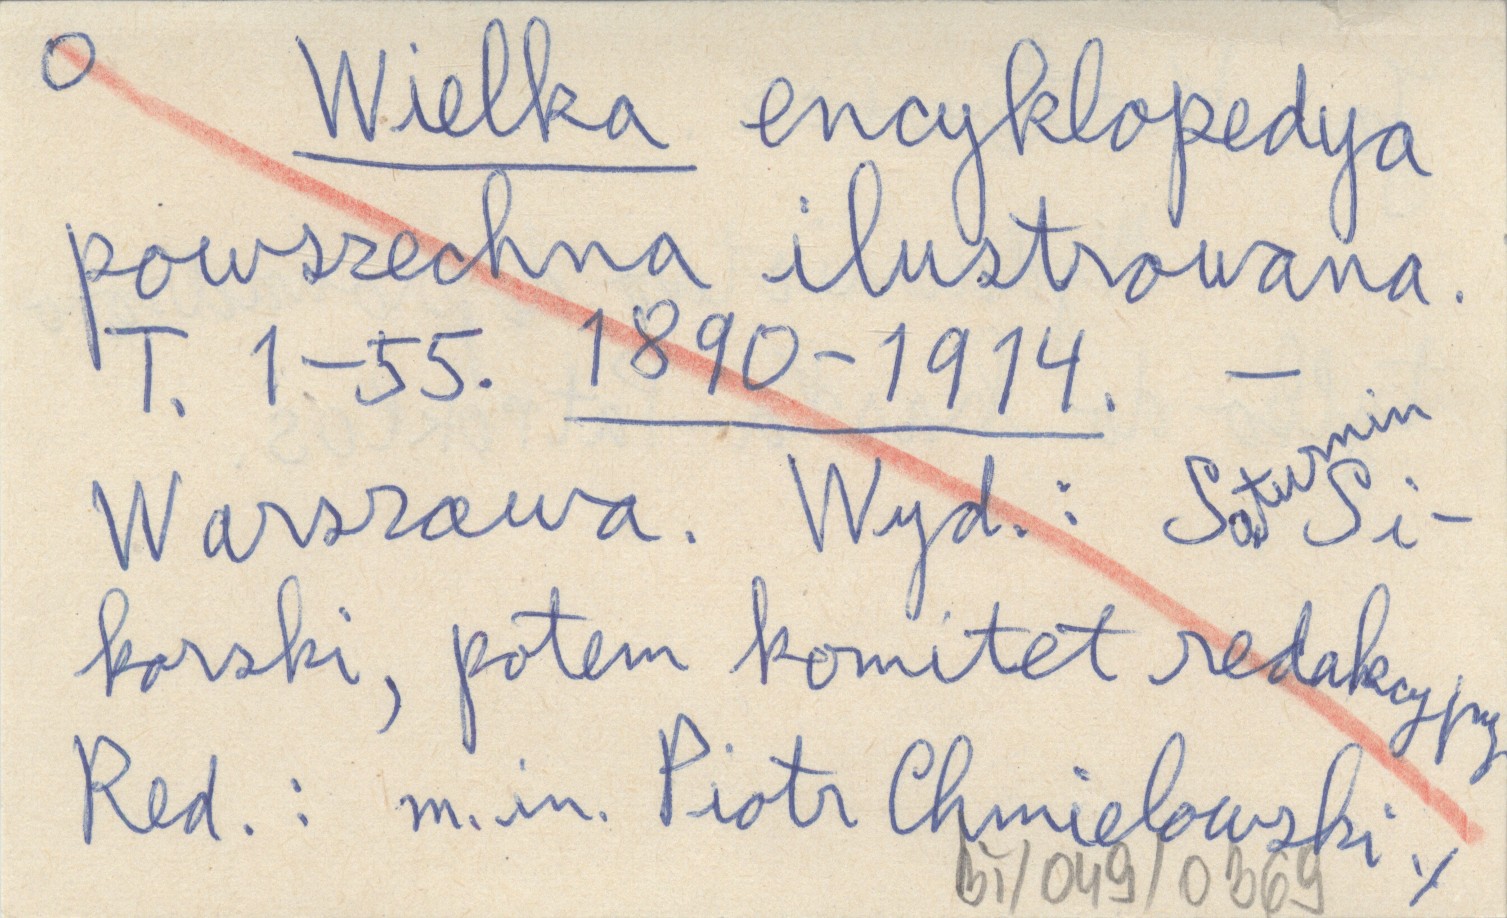 O Wielka encyklopedya
powszechna ilustrowana.
T. 1-55. 1890-1914. –
Warszawa. Wyd.: Saturnin Si-
korski, potem komitet redakcyjny
Red.: m.in. Piotr Chmielowski
bi/049/0369